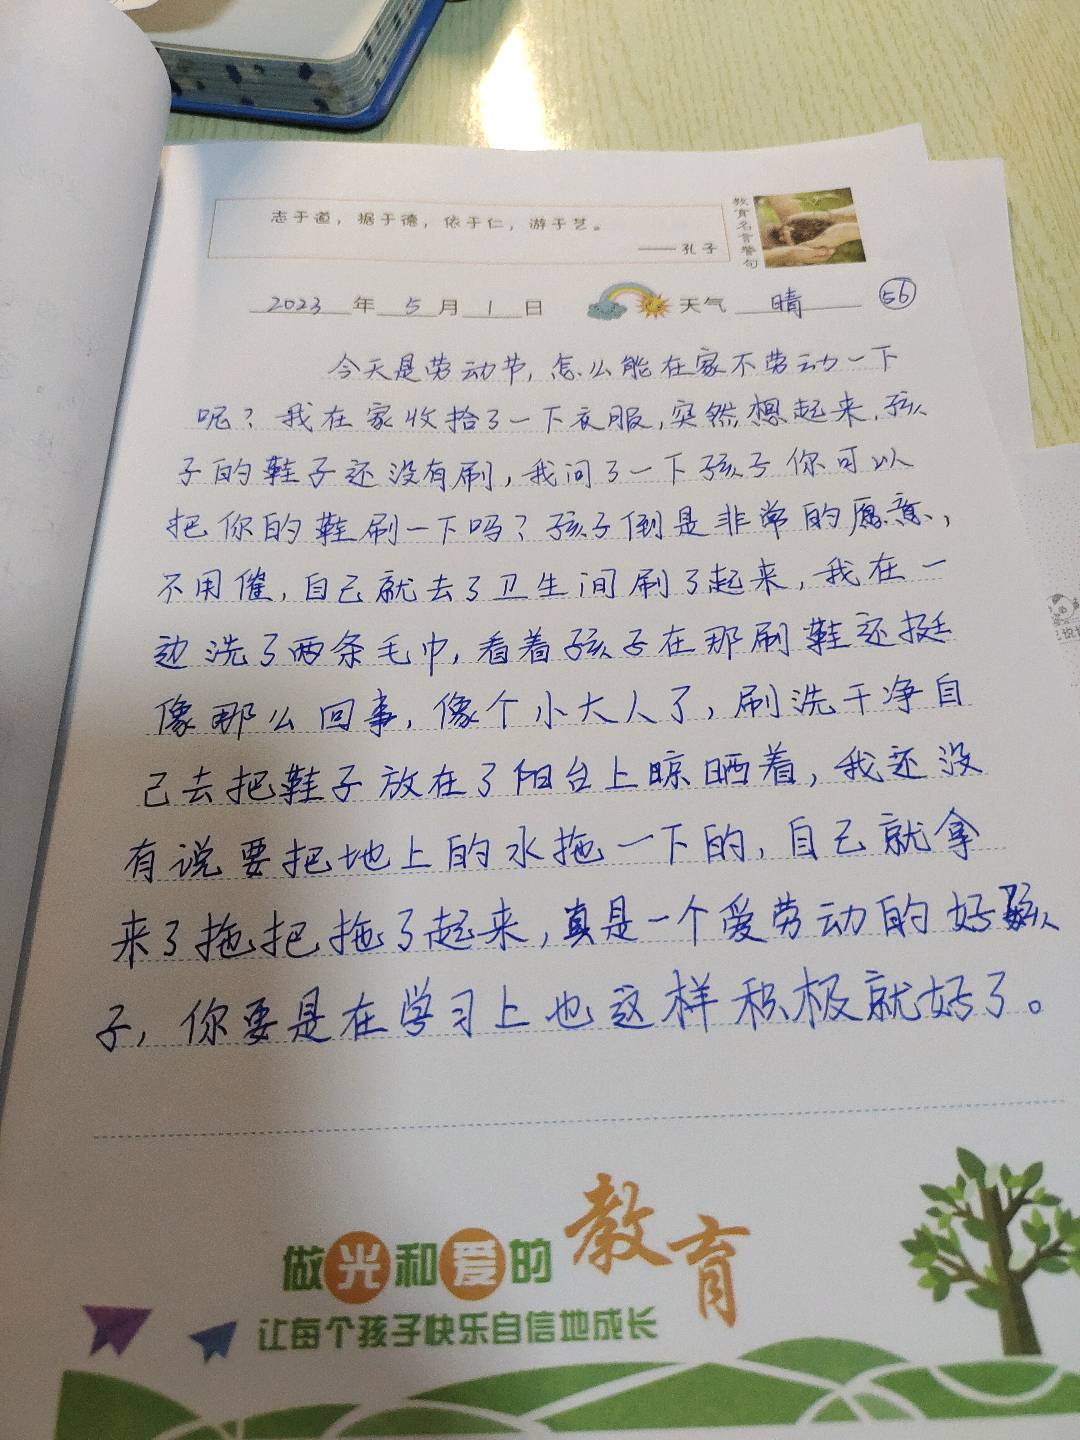 志于道，据于德，依于仁，游于艺。
——孔子
教育名言警句
2023年5月1日 天气 晴 56
今天是劳动节，怎么能在家不劳动一下
呢？我在家收拾了一下衣服，突然想起来，孩
子的鞋子还没有刷，我问了一下孩子你可以
把你的鞋刷一下吗？孩子倒是非常的愿意，
不用催，自己就去了卫生间刷了起来，我在一
边洗了两条毛巾，看着孩子在那刷鞋还挺
像那么回事，像个小大人了，刷洗干净自
己去把鞋子放在了阳台上晾晒着，我还没
有说要把地上的水拖一下的，自己就拿
来了拖把拖了起来，真是一个爱劳动的好孩
子，你要是在学习上也这样积极就好了。
做光和爱的教育
让每个孩子快乐自信地成长